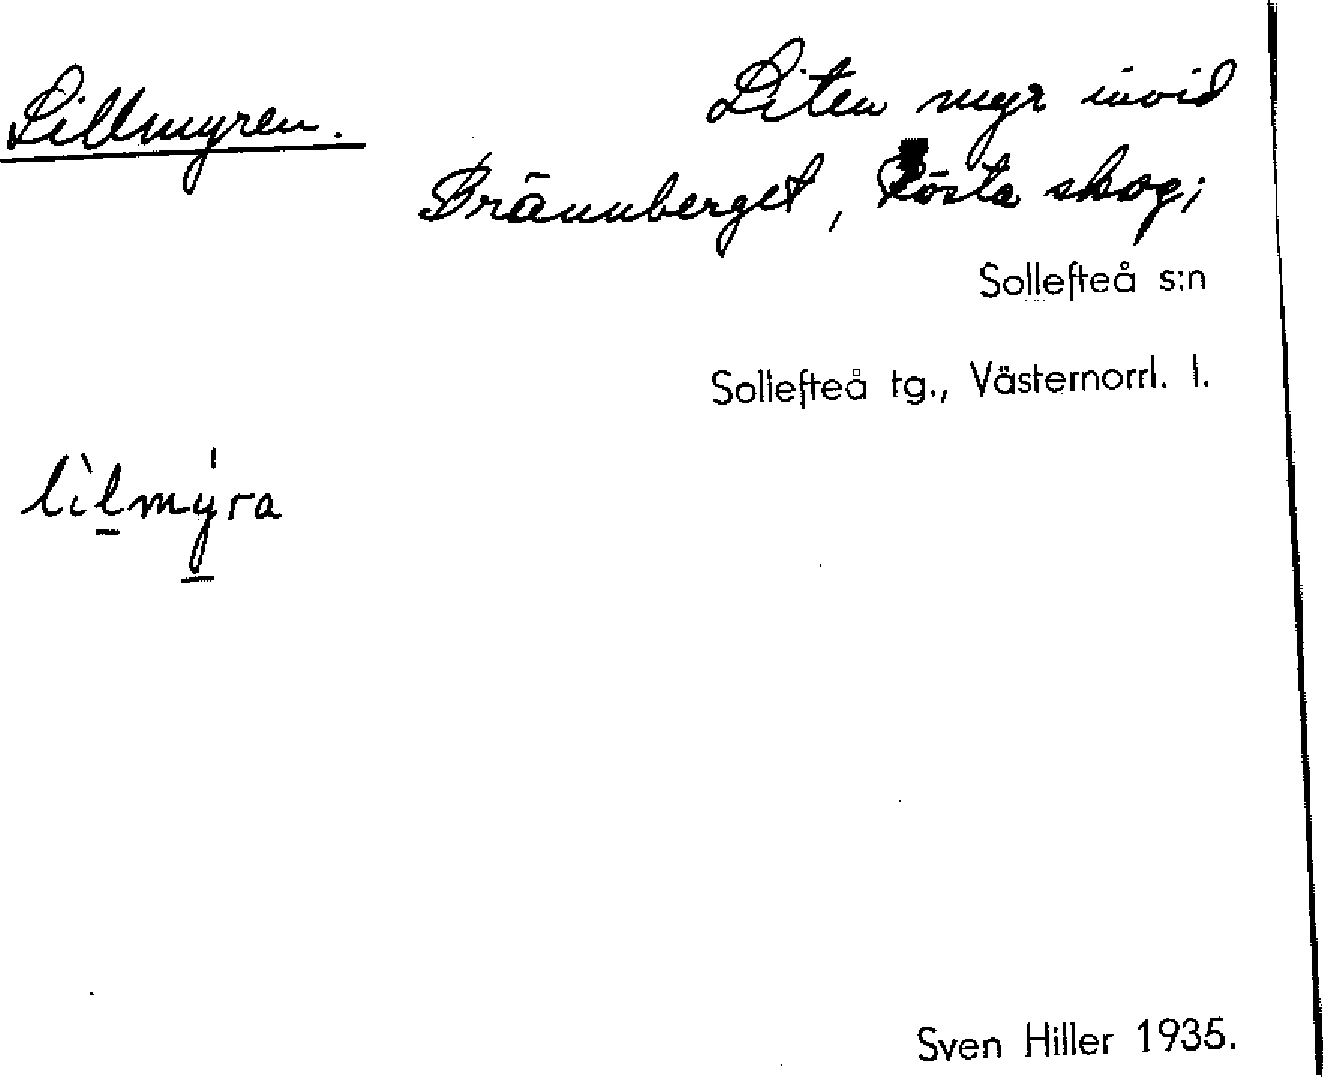 Lillmyren.
Liten myr invid
Brännberget, Rösta skog;
Sollefteå s:n
Sollefteå tg., Västernorrl. l.
lìlmýra
Sven Hiller 1935.